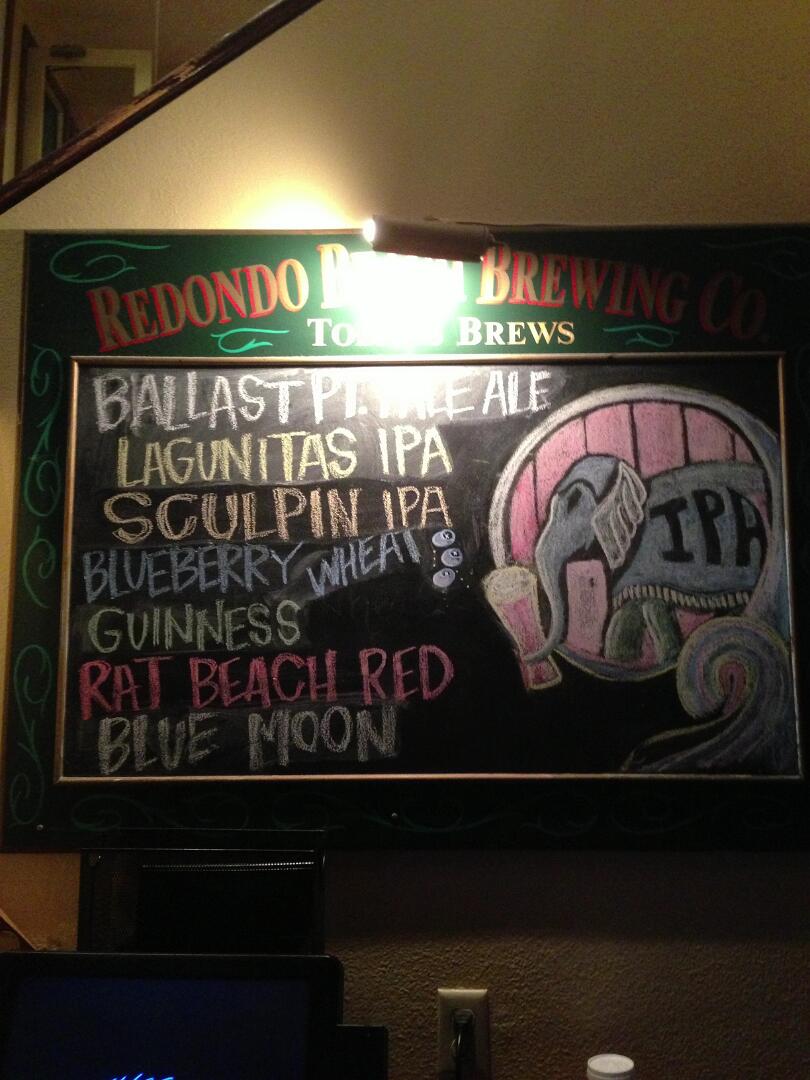 REDONDO BREWING CO.
BREWS
BALLAST PT. PALE ALE
LAGUNITAS IPA
SCULPIN IPA
BLUEBERRY WHEAT
GUINNESS
RAT BEACH RED
BLUE MOON
IPA